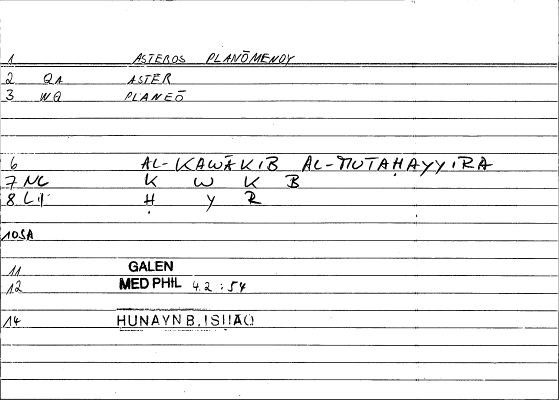 1 ASTEROS PLANŌMENOY
2 QA ASTĒR
3 WQ PLANEŌ
6 AL-KAWĀKIB AL-MUTAḤAYYIRA
7 NC K W K B
8 Ḥ Y R
10 SA
11 GALEN
12 MED PHIL 4.2 : 54
14 HUNAYN B. ISHAQ